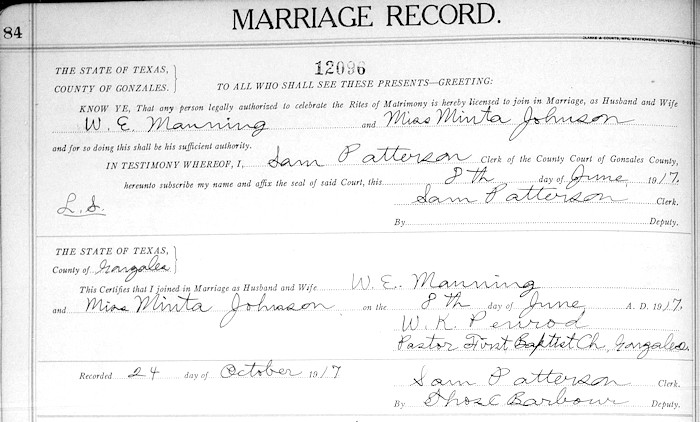 84
MARRIAGE RECORD.
CLARKE & COURTS, MFG. STATIONERS, GALVESTON
12096
THE STATE OF TEXAS,
COUNTY OF GONZALES.
TO ALL WHO SHALL SEE THESE PRESENTS—GREETING:
KNOW YE, That any person legally authorized to celebrate the Rites of Matrimony is hereby licensed to join in Marriage, as Husband and Wife
W. E. Manning and Miss Minta Johnson
and for so doing this shall be his sufficient authority.
IN TESTIMONY WHEREOF, I, Sam Patterson Clerk of the County Court of Gonzales County,
hereunto subscribe my name and affix the seal of said Court, this 8th day of June 1917.
L.S. Sam Patterson Clerk.
By Deputy.
THE STATE OF TEXAS,
County of Gonzales
This Certifies that I joined in Marriage as Husband and Wife W. E. Manning
and Miss Minta Johnson on the 8th day of June A. D. 1917.
W. K. Penrod
Pastor First Baptist Ch, Gonzales.
Recorded 24 day of October 1917 Sam Patterson Clerk.
By Thos C Barbour Deputy.